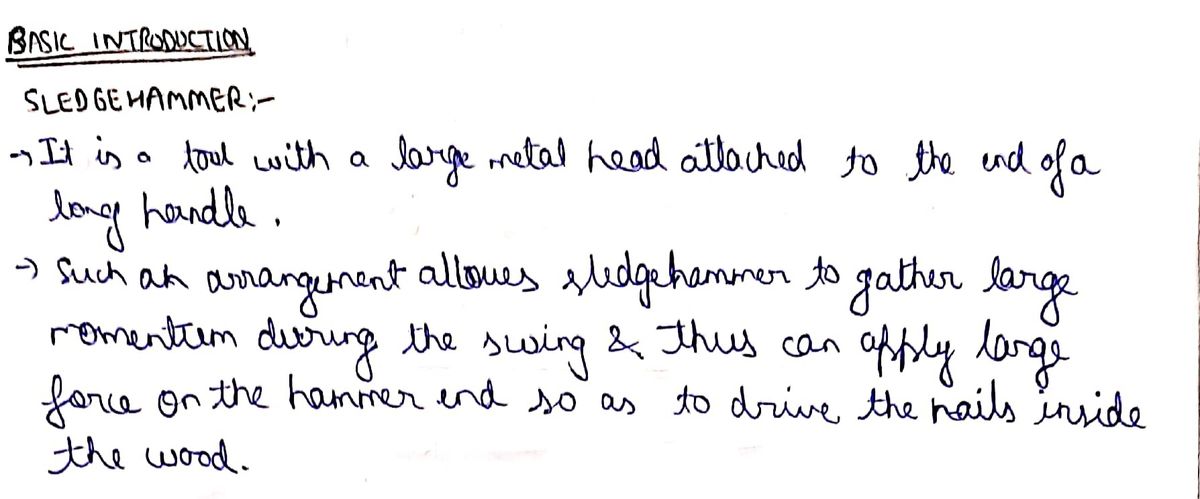 BASIC INTRODUCTION
SLEDGEHAMMER:-
→ It is a tool with a large metal head attached to the end of a
long handle.
→ Such an arrangement allowes sledgehammer to gather large
momentum during the swing & thus can apply large
force on the hammer end so as to drive the nails inside
the wood.